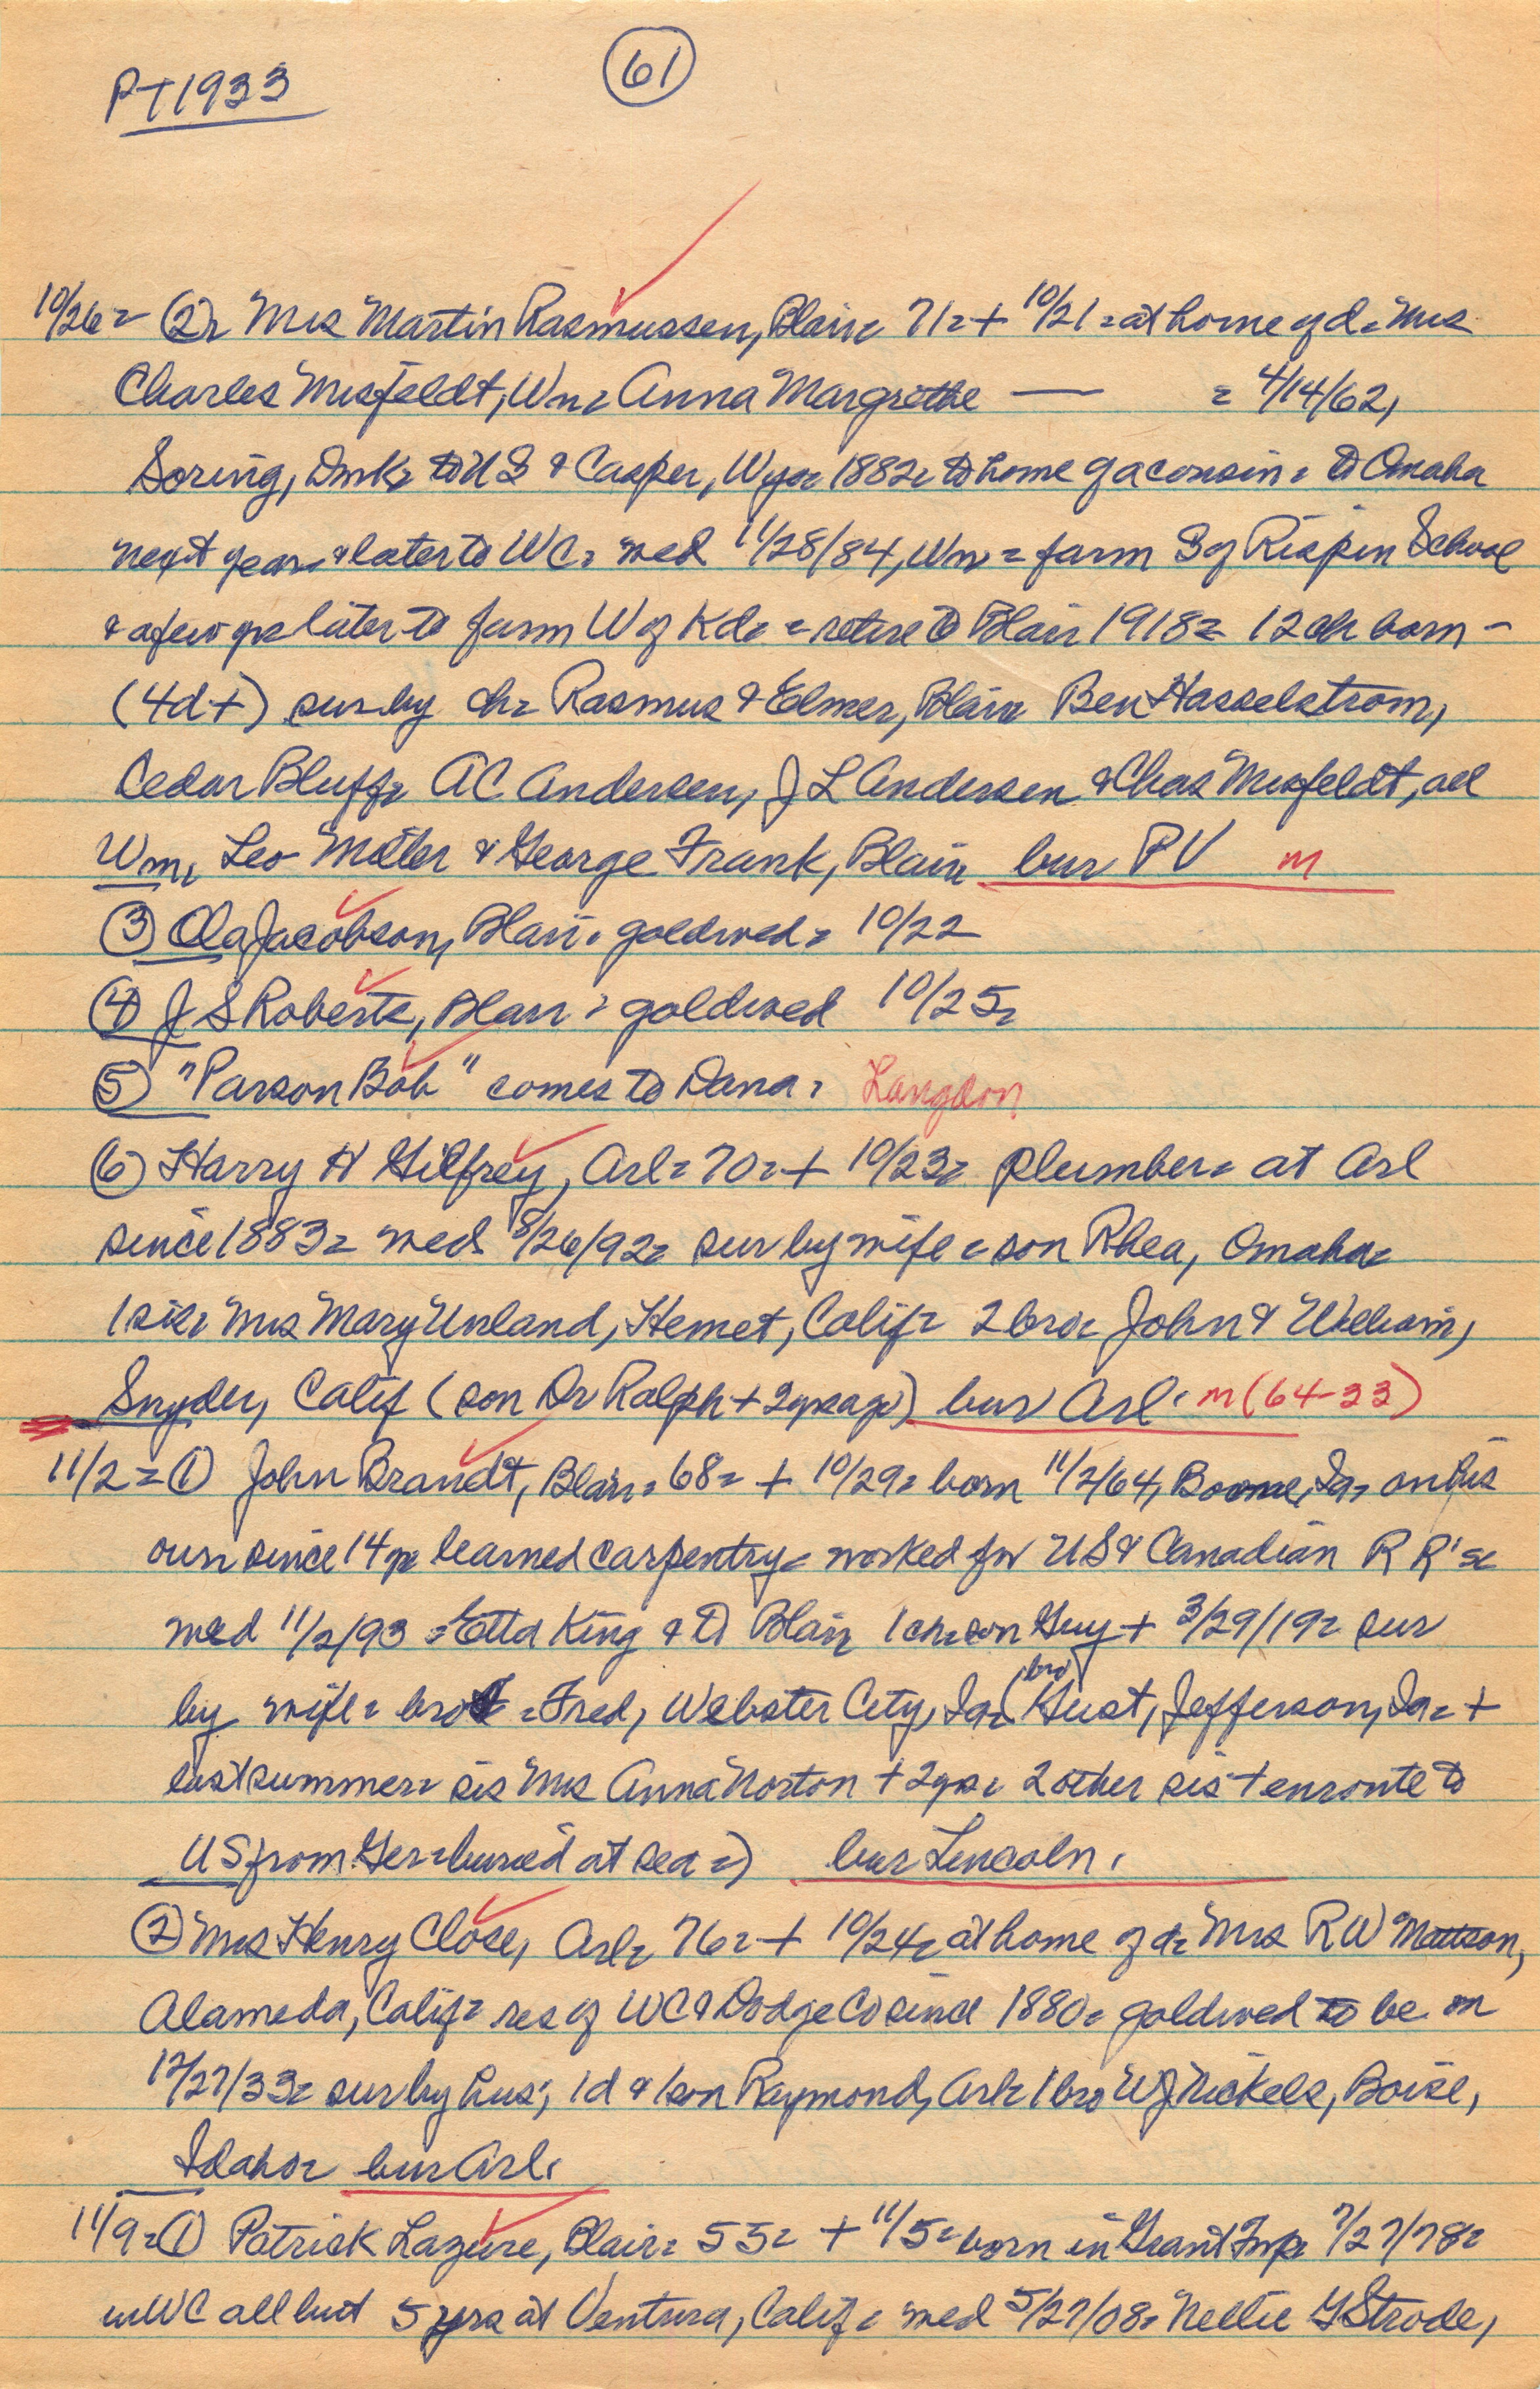 PT1933
61
10/26 = (2) = Mrs Martin Rasmussen, Blair = 71 = + 10/21 = at home of d = Mrs
Charles Misfeldt, Wn = Anna Margrethe — = 4/14/62,
Soring, Dmk = to US & Casper, Wyo = 1882 = to home of a cousin = to Omaha
next year = & later to WC = med 11/28/84, Wn = farm S of Rispin School
& a few yrs later to farm W of Kd = = retire to Blair 1918 = 12 ch born -
(4d+) sur by ch = Rasmus & Elmer, Blair Ben Hasselstrom,
Cedar Bluffs = AC Andersen, J L Andersen & Chas Misfeldt, all
Wn, Leo Miller & George Frank, Blair bur PV m
(3) Ola Jacobson, Blair = goldwed = 10/22
(4) J S Roberts, Blair = goldwed 10/25 =
(5) "Parson Bob" comes to Dana = Langdon
(6) Harry H Gilfrey, Arl = 70 = + 10/23 = plumber = at Arl
since 1883 = med 8/26/92 = sur by wife = son Rhea, Omaha =
1 sis = Mrs Mary Unland, Hemet, Calif = 2 bro = John & William,
Snyder, Calif (son Dr Ralph + 2 yrs ago) bur Arl = m (64-33)
11/2 = (1) John Brandt, Blair = 68 = + 10/29 = born 11/2/64, Boone, Ia = on his
own since 14 yr learned carpentry = worked for US & Canadian R R's =
med 11/2/93 = Etta King & to Blair 1 ch = son Guy + 3/29/19 = sur
by wife = bro = Fred, Webster City, Ia = (bro Gust, Jefferson, Ia = +
last summer = sis Mrs Anna Norton + 2 yrs = 2 other sis + enroute to
US from Ger = buried at sea =) bur Lincoln =
(2) Mrs Henry Close, Arl = 76 = + 10/24 = at home of d = Mrs RW Mattson,
Alameda, Calif = res of WC & Dodge Co since 1880 = goldwed to be on
12/27/33 = sur by hus; 1 d & 1 son Raymond, Arl = 1 bro WJ Nickels, Boise,
Idaho = bur Arl =
11/9 = (1) Patrick Lazure, Blair = 55 = + 11/5 = born in Grant Twp = 7/27/78 =
in WC all but 5 yrs at Ventura, Calif = med 5/27/08 = Nellie G Strode,